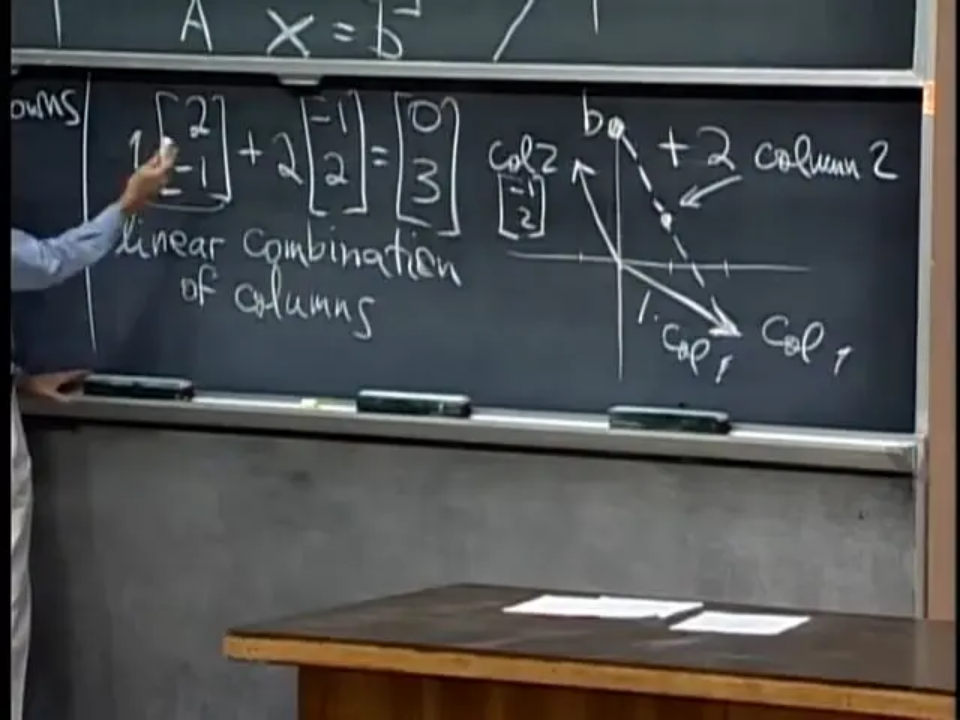 A x = b
owns
1 [2 -1] + 2 [-1 2] = [0 3]
linear combination
of columns
b
+ 2 column 2
col 2
[-1 2]
1. col 1
col 1